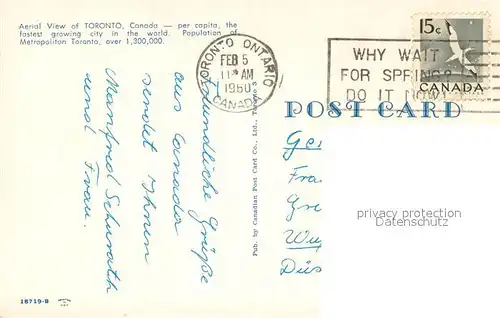 Aerial View of TORONTO, Canada — per capita, the
fastest growing city in the world. Population of
Metropolitan Toronto, over 1,300,000.
TORONTO ONTARIO
FEB 5
11 AM
1960
CANADA
WHY WAIT
FOR SPRING?
DO IT NOW!
15c
CANADA
POST CARD
Freundliche Grüße
aus Canada
sendet Ihnen
Manfred
und Frau.
Pub. by Canadian Post Card Co., Ltd., Toronto
privacy protection
Datenschutz
18719-B